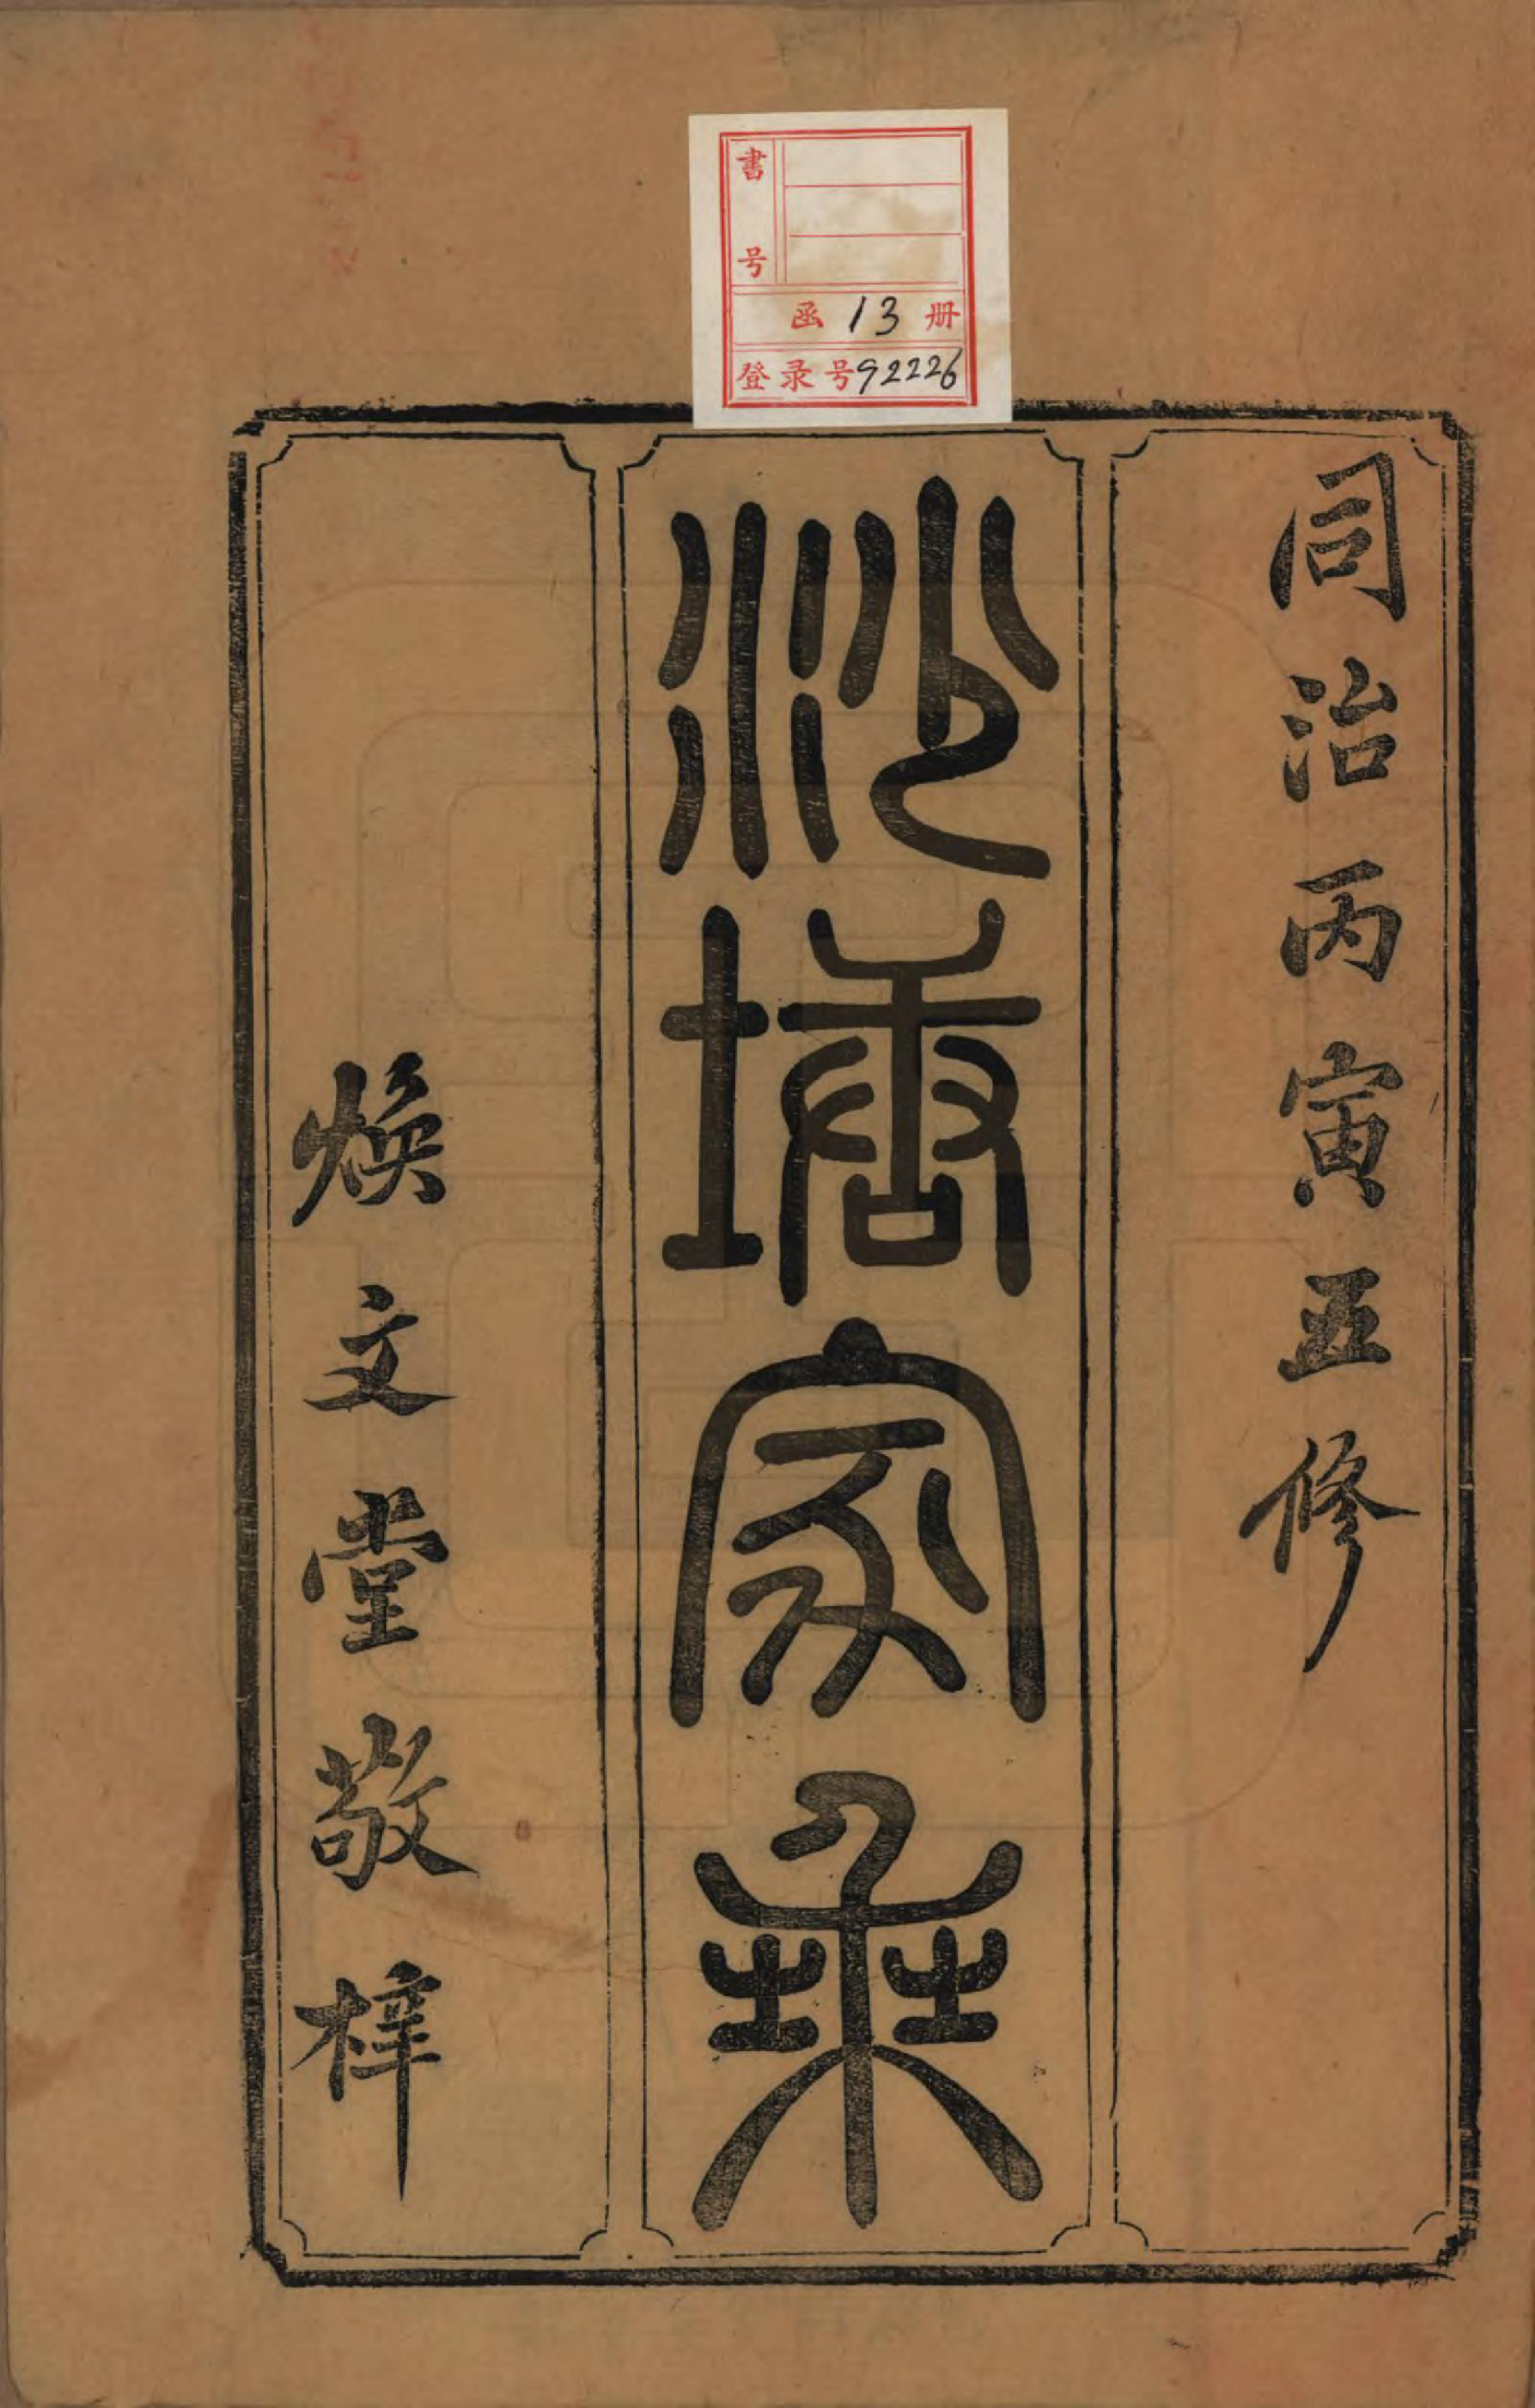 書号
函 13 册
登录号92226
同治丙寅五修
沙塘家乘
煥文堂敬梓